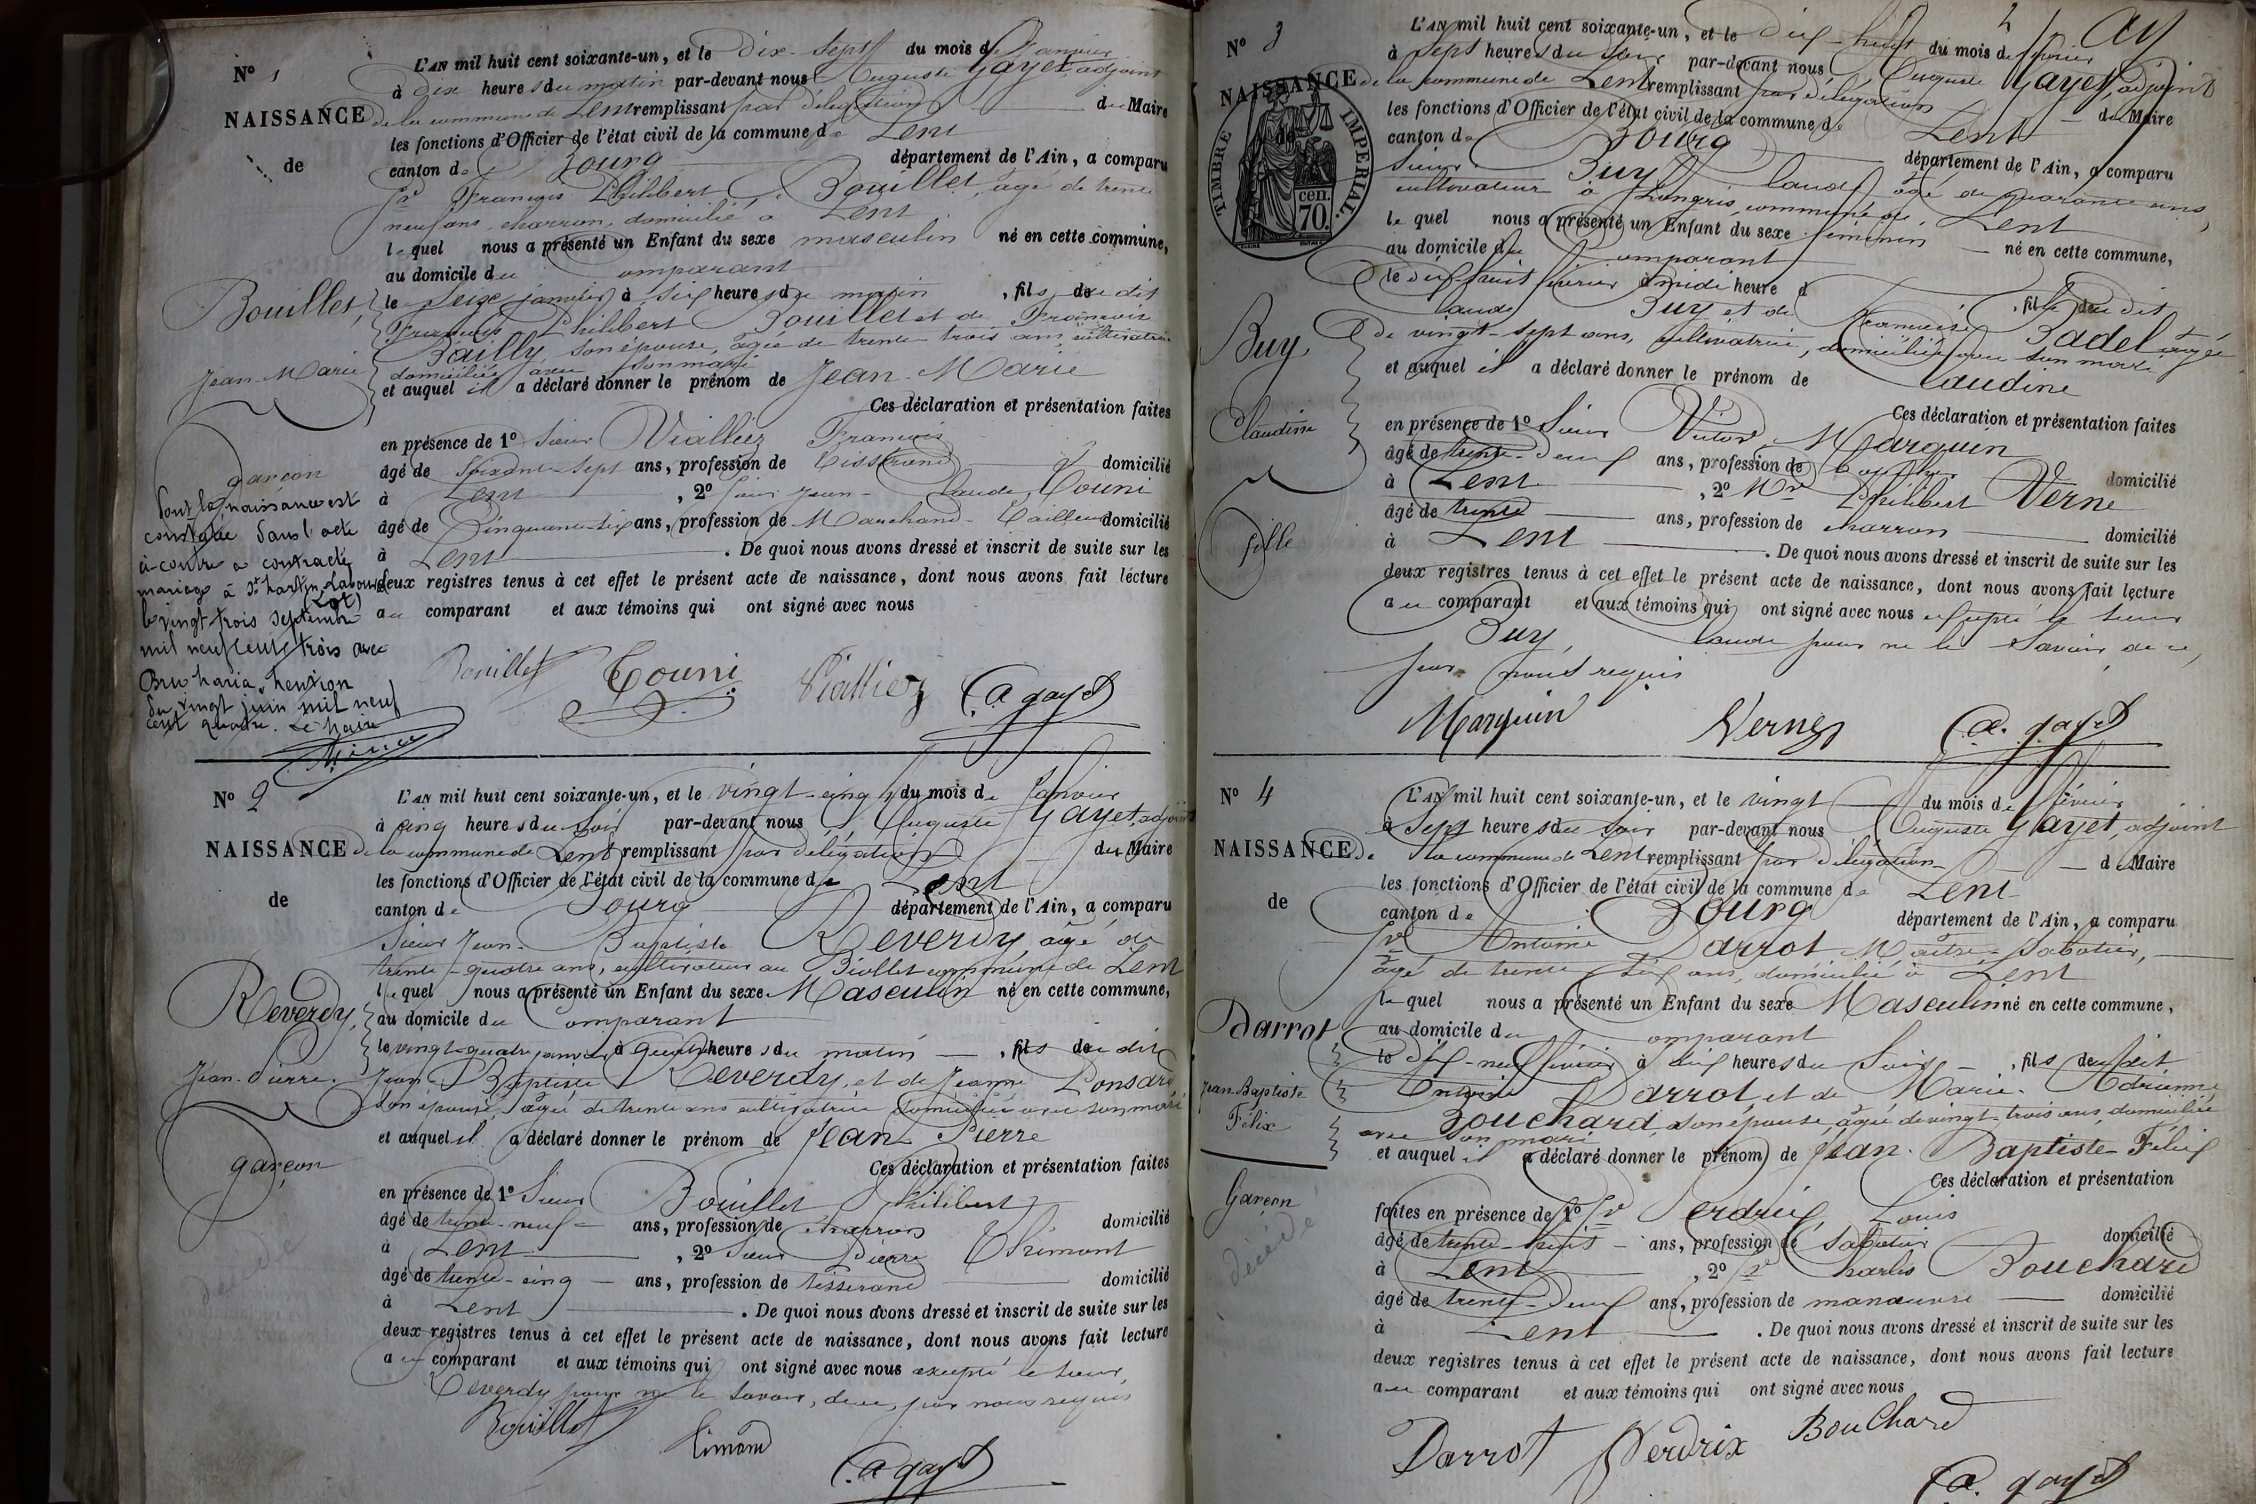 N° 1
NAISSANCE
de
Bouillet,
Jean-Marie
garçon
Dont la naissance est
constatée dans l'acte
ci-contre a contracté
mariage à St Martin Labouval
(Lot)
le vingt trois Septembre
mil neuf cent trois avec
Bru Maria. Mention
du vingt juin mil neuf
cent quatre. Le Maire
L'AN mil huit cent soixante-un, et le Dix-Sept du mois de Janvier
à dix heures du matin par-devant nous Auguste Gayet, adjoint
de la commune de Lent remplissant par délégation du Maire
les fonctions d'Officier de l'état civil de la commune de Lent
canton de Bourg département de l'Ain, a comparu
Sr François Philibert Bouillet, âgé de trente
neuf ans, charron, domicilié à Lent
lequel nous a présenté un Enfant du sexe masculin né en cette commune,
au domicile du Comparant
le Seize janvier à six heures du matin, fils de dit
François Philibert Bouillet et de Françoise
Bailly, son épouse, âgée de trente-trois ans, cultivatrice
domiciliée avec son mari
et auquel il a déclaré donner le prénom de Jean-Marie
Ces déclaration et présentation faites
en présence de 1° Sieur Vialliez François
âgé de Soixante-Sept ans, profession de Tisserand domicilié
à Lent, 2° Sieur Jean-Claude Couni
âgé de Cinquante-six ans, profession de Marchand-Tailleur domicilié
à Lent. De quoi nous avons dressé et inscrit de suite sur les
deux registres tenus à cet effet le présent acte de naissance, dont nous avons fait lecture
au comparant et aux témoins qui ont signé avec nous
Bouillet Couni Vialliez A. Gayet
N° 2
NAISSANCE
de
Reverdy,
Jean-Pierre.
garçon
décédé
L'AN mil huit cent soixante-un, et le vingt-cinq du mois de Janvier
à cinq heures du Soir par-devant nous Auguste Gayet, adjoint
de la commune de Lent remplissant par délégation du Maire
les fonctions d'Officier de l'état civil de la commune de Lent
canton de Bourg département de l'Ain, a comparu
Sieur Jean-Baptiste Reverdy, âgé de
trente-quatre ans, cultivateur au Biollet commune de Lent
lequel nous a présenté un Enfant du sexe Masculin né en cette commune,
au domicile du Comparant
le vingt-quatre janvier à quatre heures du matin, fils de dit
Jean-Baptiste Reverdy, et de Jeanne Ponsard
son épouse, âgée de trente ans cultivatrice domiciliée avec son mari
et auquel il a déclaré donner le prénom de Jean Pierre
Ces déclaration et présentation faites
en présence de 1° Sieur Bouillet Philibert
âgé de trente-neuf ans, profession de Charron domicilié
à Lent, 2° Sieur Pierre Thimont
âgé de trente-cinq ans, profession de tisserand domicilié
à Lent. De quoi nous avons dressé et inscrit de suite sur les
deux registres tenus à cet effet le présent acte de naissance, dont nous avons fait lecture
au comparant et aux témoins qui ont signé avec nous excepté le sieur,
Reverdy pour ne le savoir, de ce, par nous requis
Bouillet A. Gayet
N° 3
NAISSANCE
de
TIMBRE IMPERIAL.
70. cen.
Buy,
Claudine
fille
2
L'AN mil huit cent soixante-un, et le Dix-huit du mois de février
à Sept heures du Soir par-devant nous Auguste Gayet, adjoint
de la commune de Lent remplissant par délégation du Maire
les fonctions d'Officier de l'état civil de la commune de Lent
canton de Bourg département de l'Ain, a comparu
Sieur Buy Claude âgé de quarante ans,
cultivateur à Longris, commune de Lent
lequel nous a présenté un Enfant du sexe féminin né en cette commune,
au domicile du Comparant
le dix-huit février à midi heure d, fille du dit
Claude Buy et de Françoise Badel âgée
de vingt-sept ans, cultivatrice, domiciliée avec son mari
et auquel il a déclaré donner le prénom de Claudine
Ces déclaration et présentation faites
en présence de 1° Sieur Victor Marguin
âgé de trente-deux ans, profession de domicilié
à Lent, 2° Mr Philibert Verne
âgé de trente ans, profession de charron domicilié
à Lent. De quoi nous avons dressé et inscrit de suite sur les
deux registres tenus à cet effet le présent acte de naissance, dont nous avons fait lecture
au comparant et aux témoins qui ont signé avec nous excepté le sieur
Buy, Claude pour ne le Savoir, de ce,
par nous requis
Marguin Verne A. Gayet
N° 4
NAISSANCE
de
Darrot
Jean Baptiste
Félix
Garçon
décédé
L'AN mil huit cent soixante-un, et le vingt du mois de février
à Sept heures du Soir par-devant nous Auguste Gayet, adjoint
de la commune de Lent remplissant par délégation du Maire
les fonctions d'Officier de l'état civil de la commune de Lent
canton de Bourg département de l'Ain, a comparu
Sr Antoine Darrot Maître-Sabotier,
âgé de trente six ans, domicilié à Lent
lequel nous a présenté un Enfant du sexe Masculin né en cette commune,
au domicile du Comparant
le dix-neuf février à dix heures du Soir, fils du dit
Antoine Darrot, et de Marie-Adrienne
Bouchard, son épouse, âgée de vingt-trois ans, domiciliée
avec son mari
et auquel il a déclaré donner le prénom de Jean-Baptiste-Félix
Ces déclaration et présentation
faites en présence de 1° Sr Perdrix, Louis
âgé de trente-huit ans, profession de Sabotier domicilié
à Lent, 2° Sr Charles Bouchard
âgé de trente-deux ans, profession de manœuvre domicilié
à Lent. De quoi nous avons dressé et inscrit de suite sur les
deux registres tenus à cet effet le présent acte de naissance, dont nous avons fait lecture
au comparant et aux témoins qui ont signé avec nous
Darrot Perdrix Bouchard
A. Gayet